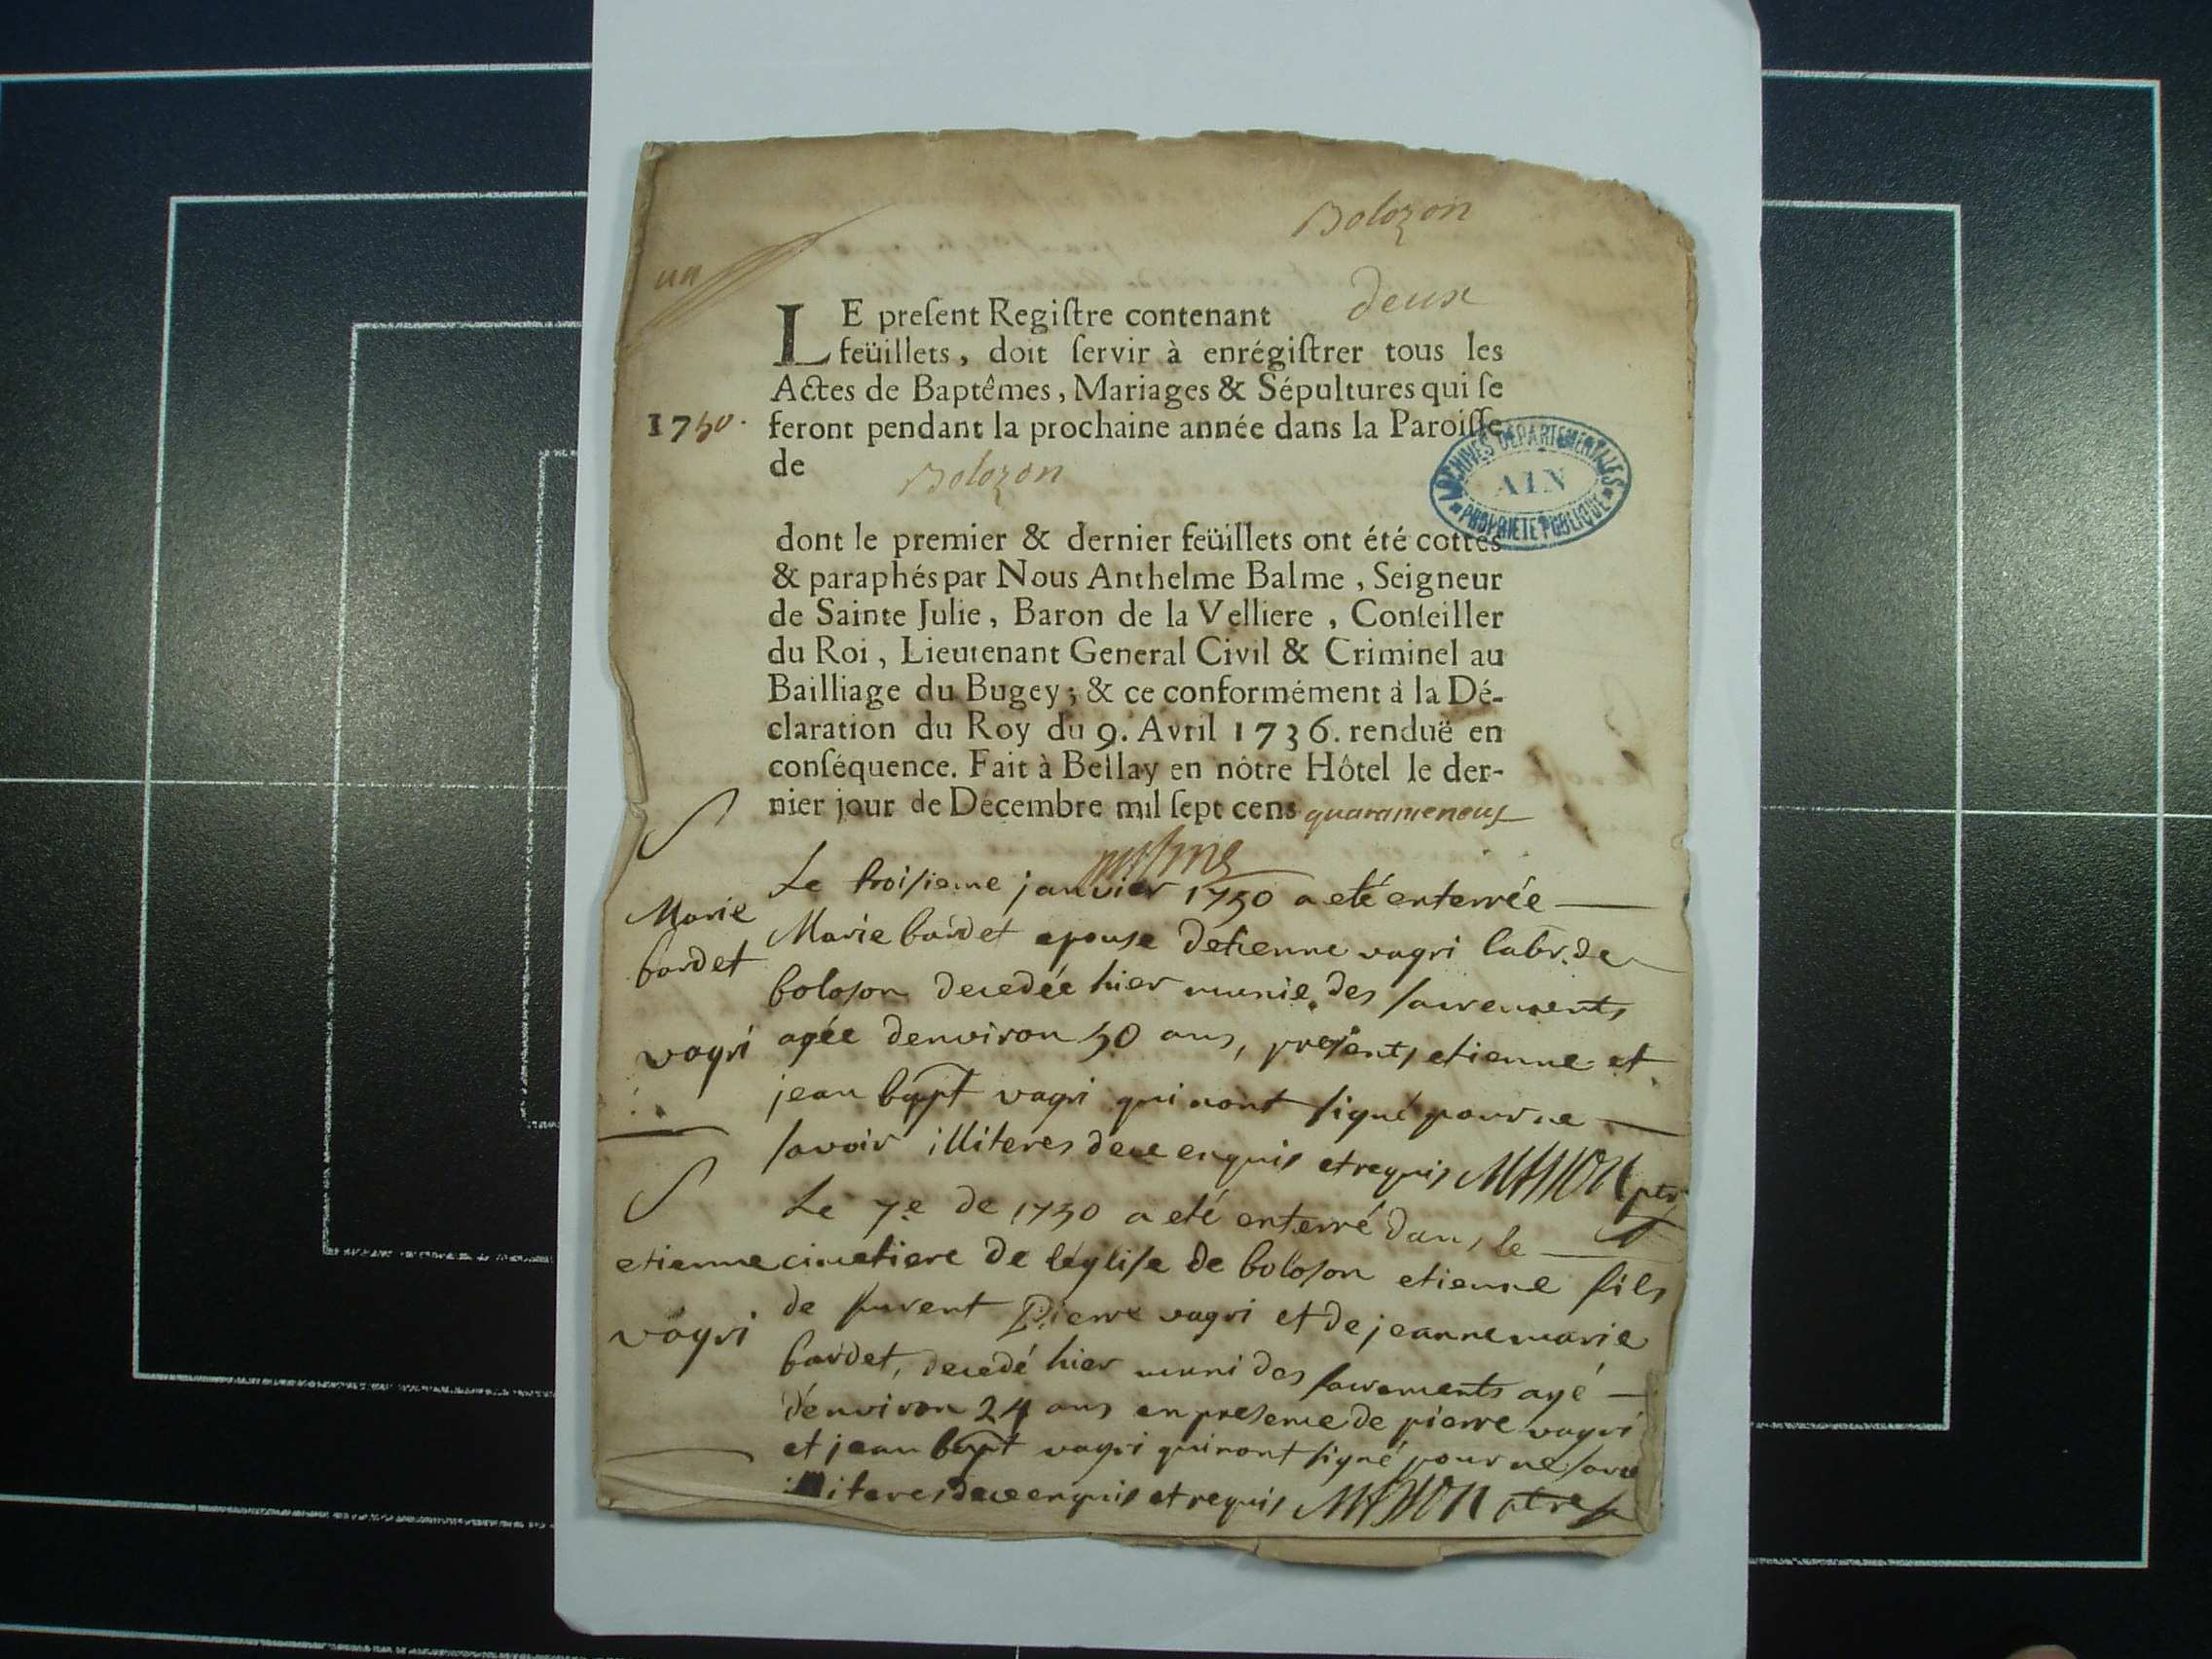 Bolozon
un
deux
LE preſent Regiſtre contenant
feüillets, doit ſervir à enrégiſtrer tous les
Actes de Baptêmes, Mariages & Sépultures qui ſe
1750. feront pendant la prochaine année dans la Paroiſſe
de Bolozon
ARCHIVES DÉPARTEMENTALES
AIN
PROPRIÉTÉ PUBLIQUE
dont le premier & dernier feüillets ont été cottés
& paraphés par Nous Anthelme Balme, Seigneur
de Sainte Julie, Baron de la Velliere, Conſeiller
du Roi, Lieutenant General Civil & Criminel au
Bailliage du Bugey; & ce conformément à la Dé-
claration du Roy du 9. Avril 1736. renduë en
conſéquence. Fait à Bellay en nôtre Hôtel le der-
nier jour de Décembre mil ſept cens quaranteneuf
S
Le troisieme janvier 1750 a eté enterrée
Marie
bardet
vagri
Marie bardet epouse detienne vagri labr. de
boloson decedée hier munie des sacrements
agée denviron 50 ans, presents etienne et
jean bapt vagri qui nont signé pour ne
savoir illiteres de ce enquis et requis MASSON ptr
S
Le 7e de 1750 a eté enterré dans le
etienne
vagri
cimetiere de léglise de boloson etienne fils
de Pierre vagri et de jeanne marie
bardet, decedé hier muni des sacrements agé
d'environ 24 ans en presence de pierre vagri
et jean bapt vagri qui nont signé pour ne
illiteres de ce enquis et requis MASSON ptre